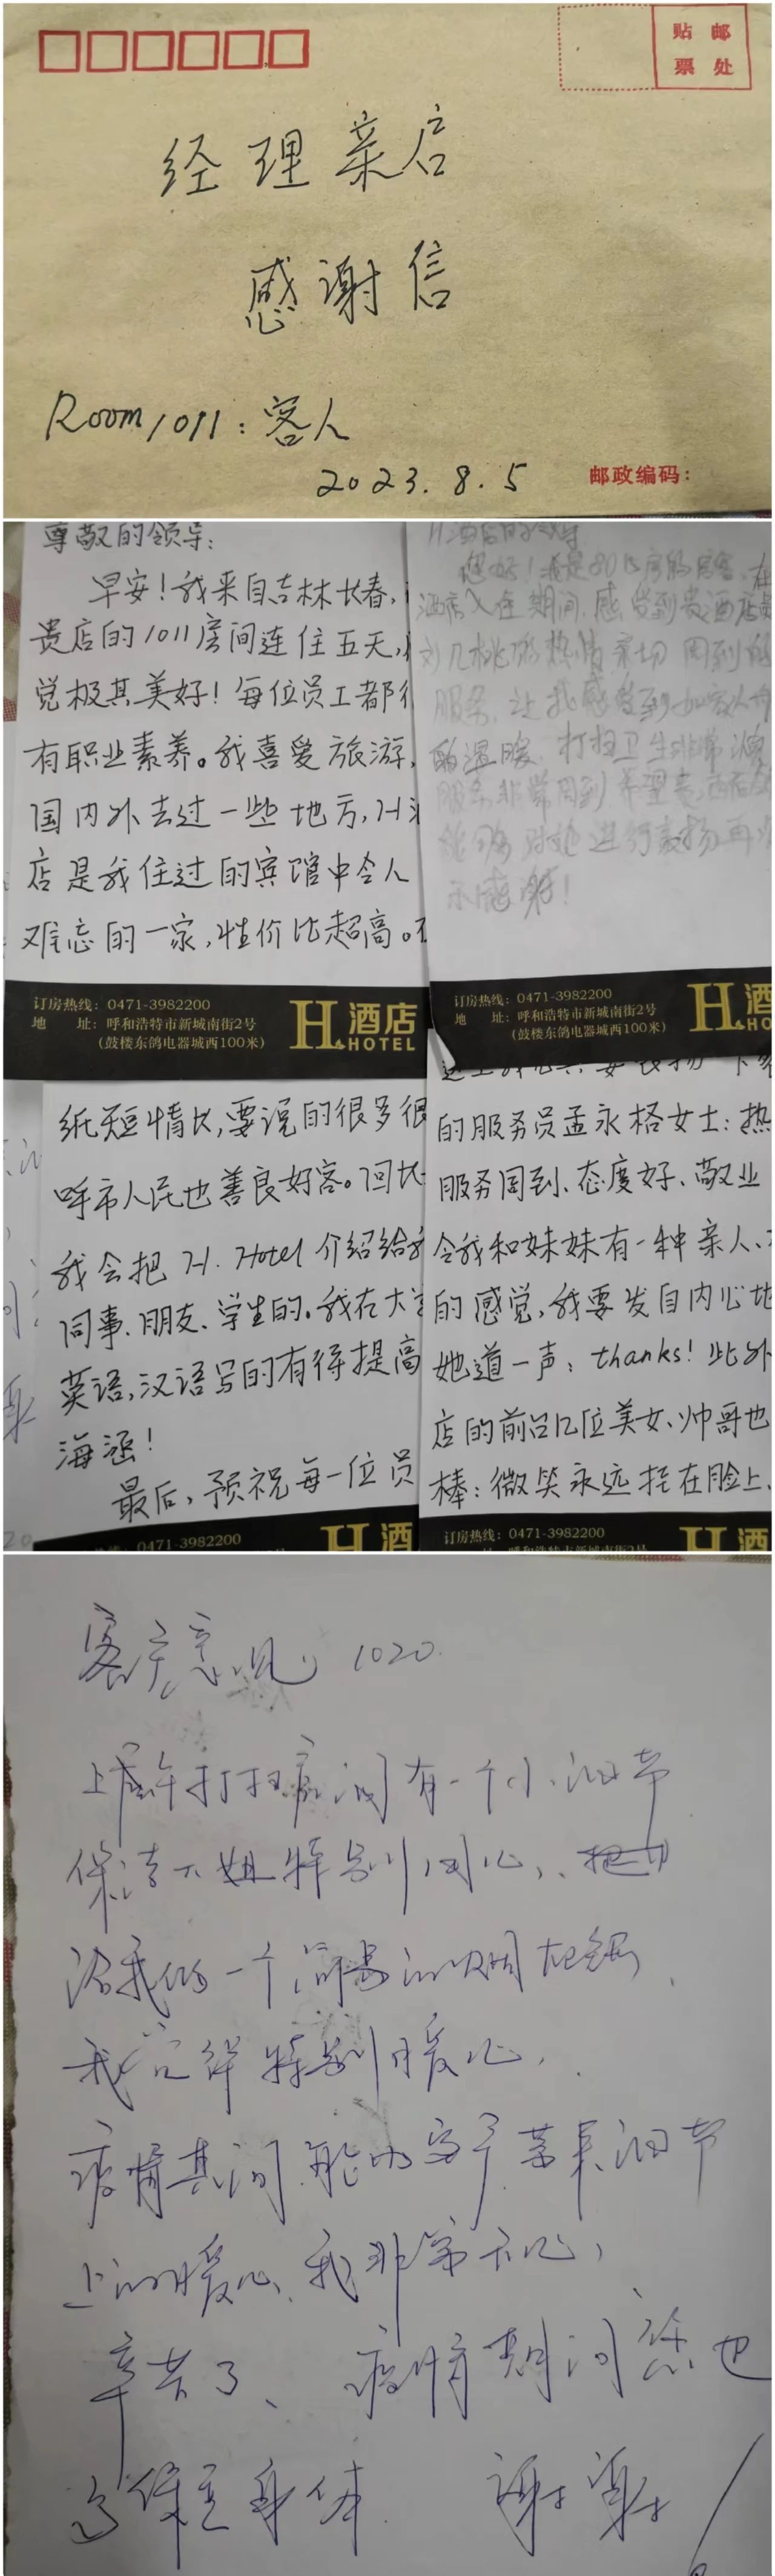 贴 邮
票 处
经理菜店
感谢信
Room 1011：客人
2023.8.5
邮政编码：
尊敬的领导：
早安！我来自吉林长春，
贵店的1011房间连住五天，
觉极其美好！每位员工都很
有职业素养。我喜爱旅游，
国内外去过一些地方，H酒
店是我住过的宾馆中令人
难忘的一家，性价比超高。
订房热线：0471-3982200
地 址：呼和浩特市新城南街2号
（鼓楼东鸽电器城西100米）
H酒店
HOTEL
H酒店的领导
您好！我是8015房的房客，在
酒店入住期间，感受到贵酒店
热情亲切 周到的
服务，让我感受到如家人
的温暖 打扫卫生非常
服务非常周到 希望贵酒店
对她进行表扬再次
示感谢！
订房热线：0471-3982200
地 址：呼和浩特市新城南街2号
（鼓楼东鸽电器城西100米）
H酒
HO
纸短情长，要说的很多很
呼市人民也善良好客。回长
我会把 H. Hotel 介绍给
同事、朋友、学生的。我在大学
英语，汉语写的有待提高
海涵！
最后，预祝每一位员
0471-3982200
H酒
的服务员孟永格女士：热
服务周到、态度好、敬业
令我和妹妹有一种亲人、
的感觉，我要发自内心地
她道一声：thanks！此外
店的前台几位美女、帅哥也
棒：微笑永远挂在脸上、
订房热线：0471-3982200
H酒
客户意见 1020
上午打扫房间有一个小细节
保洁大姐特别用心，
给我做一个简易的烟灰缸、
我觉得特别暖心，
疫情其间能为客户带来细节
上的暖心、我非常开心，
辛苦了、疫情期间您也
多保重身体 谢谢